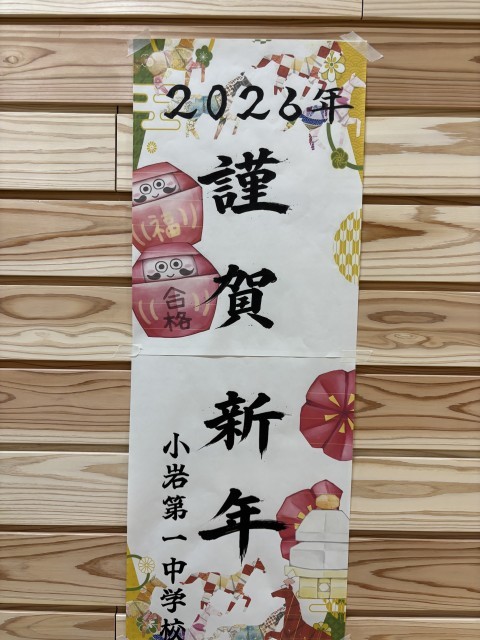 2026年
謹賀新年
小岩第一中学校
福
合格